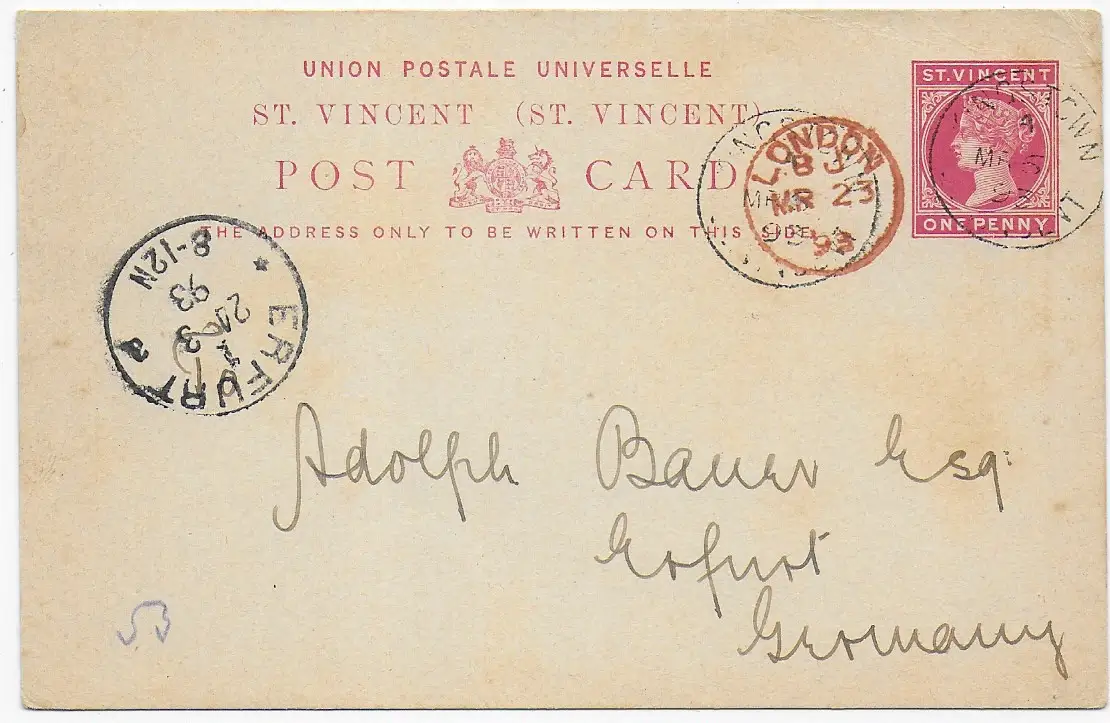 UNION POSTALE UNIVERSELLE
ST. VINCENT (ST. VINCENT)
POST CARD
THE ADDRESS ONLY TO BE WRITTEN ON THIS SIDE.
ST. VINCENT
ONE PENNY
LONDON
BJ
MR 23
93
ERFURT
3
93
8-12N
a
Adolph Bauer Esq.
Erfurt
Germany
53